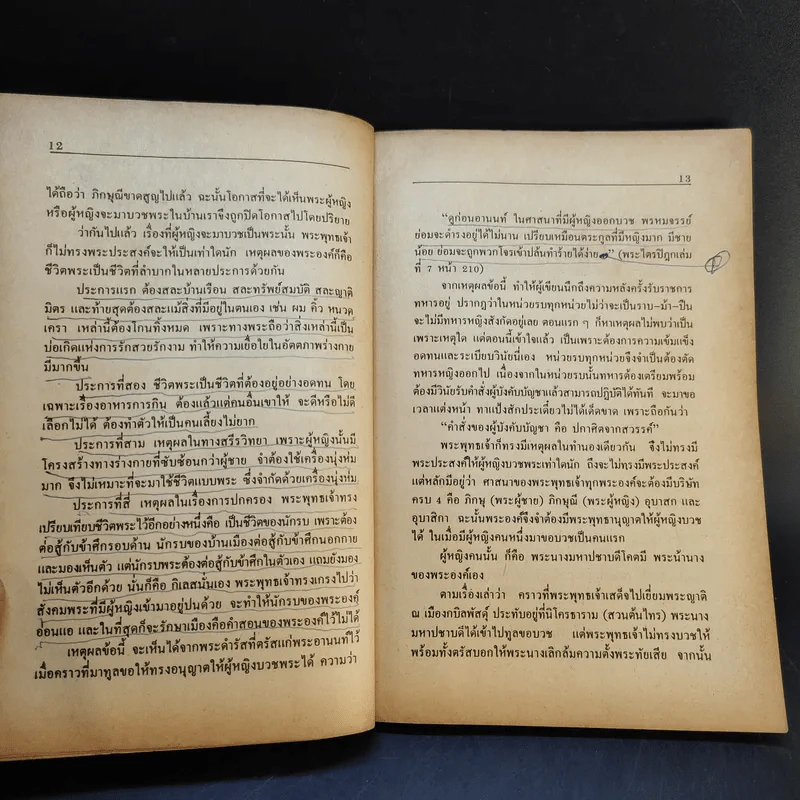 12
ได้ถือว่า ภิกษุณีขาดสูญไปแล้ว ฉะนั้นโอกาสที่จะได้เห็นพระผู้หญิง
หรือผู้หญิงจะมาบวชพระในบ้านเราจึงถูกปิดโอกาสไปโดยปริยาย
ว่ากันไปแล้ว เรื่องที่ผู้หญิงจะมาบวชเป็นพระนั้น พระพุทธเจ้า
ก็ไม่ทรงพระประสงค์จะให้เป็นเท่าใดนัก เหตุผลของพระองค์ก็คือ
ชีวิตพระเป็นชีวิตที่ลำบากในหลายประการด้วยกัน
ประการแรก ต้องสละบ้านเรือน สละทรัพย์สมบัติ สละญาติ
มิตร และท้ายสุดต้องสละแม้สิ่งที่มีอยู่ในตนเอง เช่น ผม คิ้ว หนวด
เครา เหล่านี้ต้องโกนทิ้งหมด เพราะทางพระถือว่าสิ่งเหล่านี้เป็น
บ่อเกิดแห่งการรักสวยรักงาม ทำให้ความเยื่อใยในอัตตภาพร่างกาย
มีมากขึ้น
ประการที่สอง ชีวิตพระเป็นชีวิตที่ต้องอยู่อย่างอดทน โดย
เฉพาะเรื่องอาหารการกิน ต้องแล้วแต่คนอื่นเขาให้ จะดีหรือไม่ดี
เลือกไม่ได้ ต้องทำตัวให้เป็นคนเลี้ยงไม่ยาก
ประการที่สาม เหตุผลในทางสรีรวิทยา เพราะผู้หญิงนั้นมี
โครงสร้างทางร่างกายที่ซับซ้อนกว่าผู้ชาย จำต้องใช้เครื่องนุ่งห่ม
มาก จึงไม่เหมาะที่จะมาใช้ชีวิตแบบพระ ซึ่งจำกัดด้วยเครื่องนุ่งห่ม
ประการที่สี่ เหตุผลในเรื่องการปกครอง พระพุทธเจ้าทรง
เปรียบเทียบชีวิตพระไว้อีกอย่างหนึ่งคือ เป็นชีวิตของนักรบ เพราะต้อง
ต่อสู้กับข้าศึกรอบด้าน นักรบของบ้านเมืองต่อสู้กับข้าศึกนอกกาย
และมองเห็นตัว แต่นักรบพระต้องต่อสู้กับข้าศึกในตัวเอง แถมยังมอง
ไม่เห็นตัวอีกด้วย นั่นก็คือ กิเลสนั่นเอง พระพุทธเจ้าทรงเกรงไปว่า
สังคมพระที่มีผู้หญิงเข้ามาอยู่ปนด้วย จะทำให้นักรบของพระองค์
อ่อนแอ และในที่สุดก็จะรักษาเมืองคือคำสอนของพระองค์ไว้ไม่ได้
เหตุผลข้อนี้ จะเห็นได้จากพระดำรัสที่ตรัสแก่พระอานนท์ไว้
เมื่อคราวที่มาทูลขอให้ทรงอนุญาตให้ผู้หญิงบวชพระได้ ความว่า
13
“ดูก่อนอานนท์ ในศาสนาที่มีผู้หญิงออกบวช พรหมจรรย์
ย่อมจะดำรงอยู่ได้ไม่นาน เปรียบเหมือนตระกูลที่มีหญิงมาก มีชาย
น้อย ย่อมจะถูกพวกโจรเข้าปล้นทำร้ายได้ง่าย” (พระไตรปิฎกเล่ม
ที่ 7 หน้า 210)
จากเหตุผลข้อนี้ ทำให้ผู้เขียนนึกถึงความหลังครั้งรับราชการ
ทหารอยู่ ปรากฏว่าในหน่วยรบทุกหน่วยไม่ว่าจะเป็นราบ-ม้า-ปืน
จะไม่มีทหารหญิงสังกัดอยู่เลย ตอนแรก ๆ ก็หาเหตุผลไม่พบว่าเป็น
เพราะเหตุใด แต่ตอนนี้เข้าใจแล้ว เป็นเพราะต้องการความเข้มแข็ง
อดทนและระเบียบวินัยนี่เอง หน่วยรบทุกหน่วยจึงจำเป็นต้องตัด
ทหารหญิงออกไป เนื่องจากในหน่วยรบนั้นทหารต้องเตรียมพร้อม
ต้องมีวินัยรับคำสั่งผู้บังคับบัญชาแล้วสามารถปฏิบัติได้ทันที จะมาขอ
เวลาแต่งหน้า ทาแป้งสักประเดี๋ยวไม่ได้เด็ดขาด เพราะถือกันว่า
“คำสั่งของผู้บังคับบัญชา คือ ปกาศิตจากสวรรค์”
พระพุทธเจ้าก็ทรงมีเหตุผลในทำนองเดียวกัน จึงไม่ทรงมี
พระประสงค์ให้ผู้หญิงบวชพระเท่าใดนัก ถึงจะไม่ทรงมีพระประสงค์
แต่หลักมีอยู่ว่า ศาสนาของพระพุทธเจ้าทุกพระองค์จะต้องมีบริษัท
ครบ 4 คือ ภิกษุ (พระผู้ชาย) ภิกษุณี (พระผู้หญิง) อุบาสก และ
อุบาสิกา ฉะนั้นพระองค์จึงจำต้องมีพระพุทธานุญาตให้ผู้หญิงบวช
ได้ ในเมื่อมีผู้หญิงคนหนึ่งมาขอบวชเป็นคนแรก
ผู้หญิงคนนั้น ก็คือ พระนางมหาปชาบดีโคตมี พระน้านาง
ของพระองค์เอง
ตามเรื่องเล่าว่า คราวที่พระพุทธเจ้าเสด็จไปเยี่ยมพระญาติ
ณ เมืองกบิลพัสดุ์ ประทับอยู่ที่นิโครธาราม (สวนต้นไทร) พระนาง
มหาปชาบดีได้เข้าไปทูลขอบวช แต่พระพุทธเจ้าไม่ทรงบวชให้
พร้อมทั้งตรัสบอกให้พระนางเลิกล้มความตั้งพระทัยเสีย จากนั้น